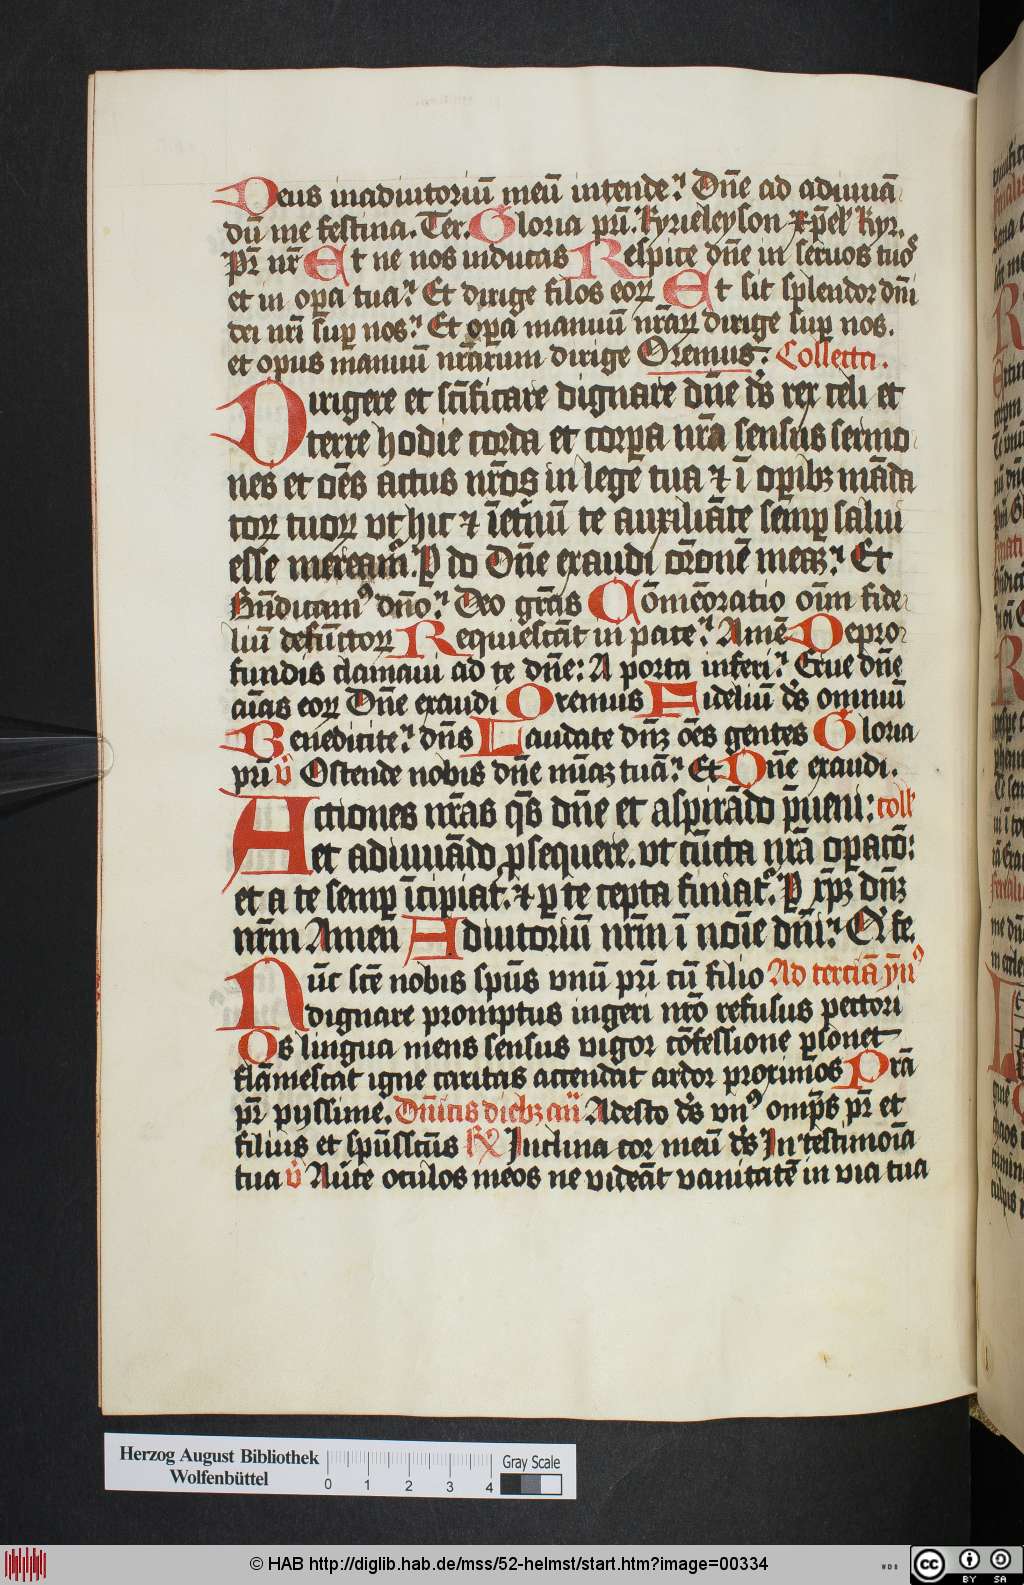 Deus inadiutoriū meū intende. Dn̄e ad adiuuā
dū me festina. Ter. Gloria pri̅. kyrieleyson xp̄el kyr.
Pr̄ nr̄ Et ne nos inducas Respice dn̄e in seruos tuos
et in opa tua. Et dirige filos eoꝝ Et sit splendor dn̄i
dei nr̄i sup̄ nos. Et opa manuū nr̄aꝝ dirige sup̄ nos.
et opus manuū nr̄arum dirige Oremus. Collecta.
Dirigere et sc̄ificare dignare dn̄e ds̄ rex celi et
terre hodie corda et corpa nr̄a sensus sermo
nes et oēs actus nr̄os in lege tua ⁊ ī opibꝫ māda
toꝝ tuoꝝ vt hic ⁊ ī et̄nū te auxiliāte semꝑ salui
esse meream̄. Ꝑ do Dn̄e exaudi or̄onē meaꝫ. Et
Bn̄dicamꝰ dn̄o. Deo gr̄as Cōmēoratio oīm fide
liū defūctoꝝ Requiescāt in pace. Amē Depro
fundis clamaui ad te dn̄e: A porta inferi. Erue dn̄e
aīas eoꝝ Dn̄e exaudi Oremus Fideliū ds̄ omniū
Benedicite. dn̄s Laudate dn̄ꝫ oēs gentes Gloria
pri̅ v̄ Ostende nobis dn̄e mīaꝫ tuā. Et Dn̄e exaudi.
Actiones nr̄as qs̄ dn̄e et aspirādo p̄ueni: coll
et adiuuādo ꝓsequere. vt cūcta nr̄a opacō:
et a te semꝑ īcipiat. ⁊ ꝑ te cepta finiat̄. Ꝑ xp̄ꝫ dn̄ꝫ
nr̄m Amen Adiutoriū nr̄m ī noīe dn̄i. Q' fe.
Nūc sc̄e nobis spūs vnū pri̅ cū filio Ad terciā ym̄ꝰ
dignare promptus ingeri nr̄o refusus pectori
Os lingua mens sensus vigor cōfessione ꝑsonet
flāmescat igne caritas accendat ardor proximos Prā
pr̄ pyssime. Dn̄icis diebꝫ an̄ Adesto ds̄ vnꝰ omp̄s pr̄ et
filius et spūssctūs ℟ Inclina cor meū ds̄ In testimoīa
tua v̄ Au̅te oculos meos ne videāt vanitatē in via tua
Herzog August Bibliothek
Wolfenbüttel
0 1 2 3 4
Gray Scale
© HAB http://diglib.hab.de/mss/52-helmst/start.htm?image=00334
WDB
cc BY SA